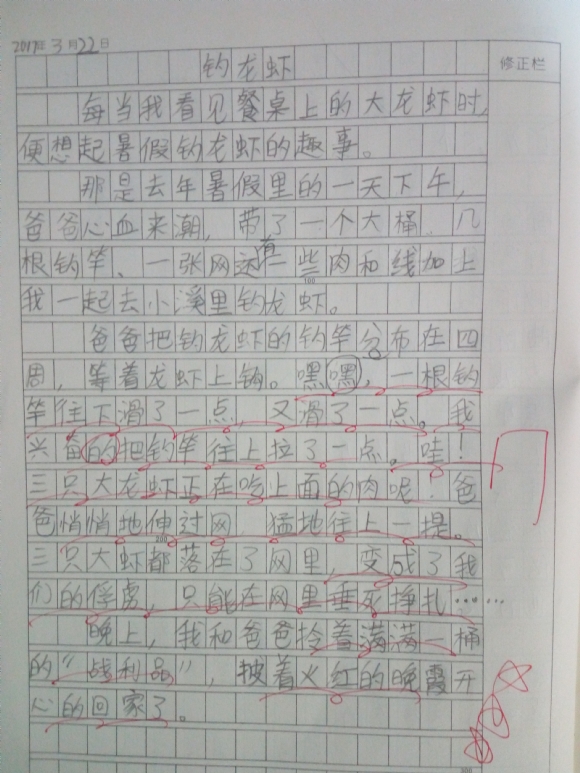 2017年3月22日
修正栏
钓龙虾
每当我看见餐桌上的大龙虾时,
便想起暑假钓龙虾的趣事。
那是去年暑假里的一天下午,
爸爸心血来潮,带了一个大桶、几
根钓竿、一张网还有一些肉和线加上
100
我一起去小溪里钓龙虾。
爸爸把钓龙虾的钓竿分布在四
周,等着龙虾上钩。嘿嘿,一根钓
竿往下滑了一点,又滑了一点。我
兴奋的把钓竿往上拉了一点。哇!
三只大龙虾正在吃上面的肉呢!爸
爸悄悄地伸过网,猛地往上一提。
200
三只大虾都落在了网里,变成了我
们的俘虏,只能在网里垂死挣扎……
晚上,我和爸爸拎着满满一桶
的“战利品”,披着火红的晚霞开
心的回家了。
300